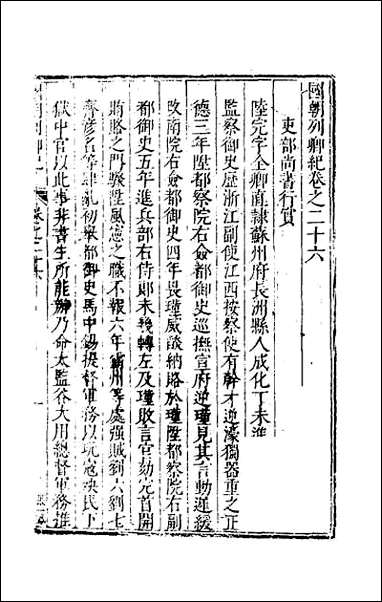 國朝列卿紀卷之二十六
吏部尚書行實
陸完字全卿直隸蘇州府長洲縣人成化丁未進
監察御史歷浙江副使江西按察使有幹才逆濠獨器重之正
德三年陞都察院右僉都御史巡撫宣府逆瑾見其言動運緩
改南院右僉都御史四年畏瑾威議納賂於瑾陞都察院右副
都御史五年進兵部右侍郎未幾轉左及瑾敗言官劾完首開
賄賂之門驟陞風憲之職不報六年霸州等處強賊劉六劉七
齊彥名等肆亂初舉都御史馬中錫提督軍務以玩寇殃民下
獄中官以此事非書生所能辦乃命太監谷大用總督軍務進